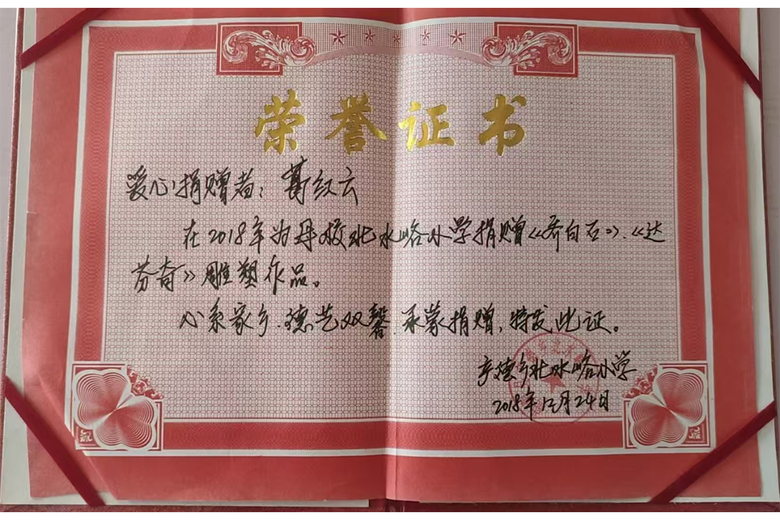 荣誉证书
爱心捐赠者：葛红云
在2018年为母校北水峪小学捐赠《齐白石》.《达
芬奇》雕塑作品。
心系家乡.德艺双馨.承蒙捐赠,特发此证。
乡北水峪小学
2018年12月24日